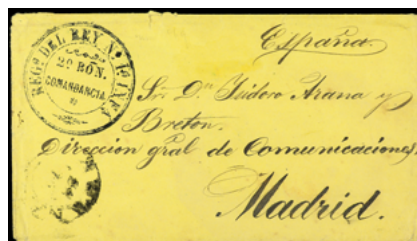 REGº DEL REY Nº 1º INFª
2º BON.
COMANDANCIA
España.
Sr. Dn. Isidoro Arana y
Breton.
Direccion gral de Comunicaciones.
Madrid.